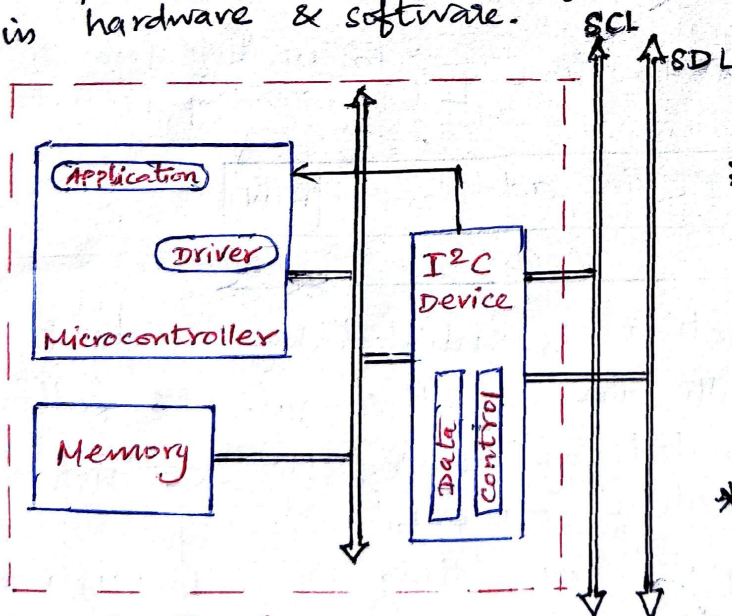 in hardware & software.
SCL
SDL
Application
Driver
Microcontroller
I²C
Device
Data
Control
Memory